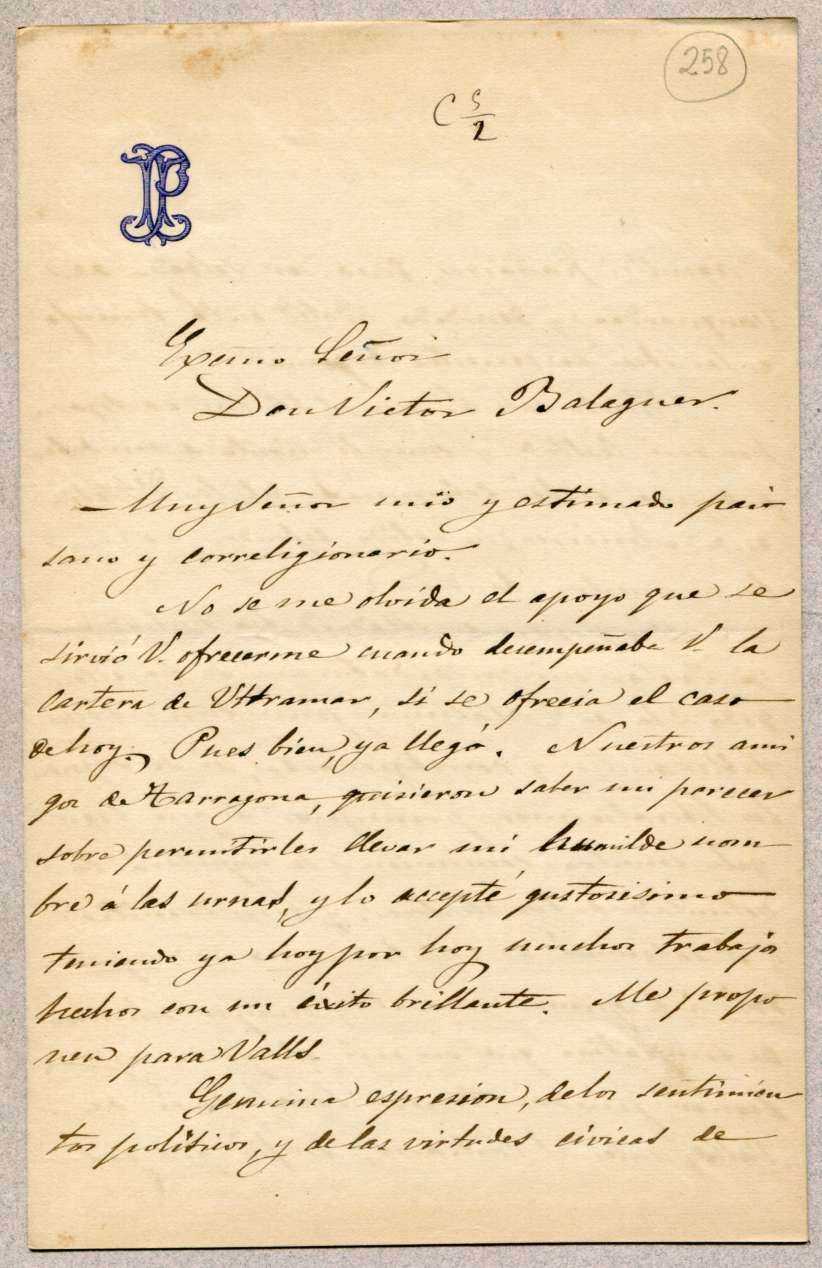 258
C 5/2
JP
Exmo Señor
Don Victor Balaguer.
— Muy Señor mio y estimado pai
sano y correligionario.
No se me olvida el apoyo que se
sirvió V. ofrecerme cuando desempeñaba V. la
cartera de Ultramar, si se ofrecia el caso
de hoy. Pues bien, ya llegó. Nuestros ami
gos de Tarragona, quisieron saber mi parecer
sobre permitirles llevar mi humilde nom-
bre á las urnas, y lo accepté gustosisimo
teniendo ya hoy por hoy muchos trabajos
hechos con un éxito brillante. Me propo
nen para Valls.
Genuina espresion, de los sentimien
tos politicos, y de las virtudes civicas de